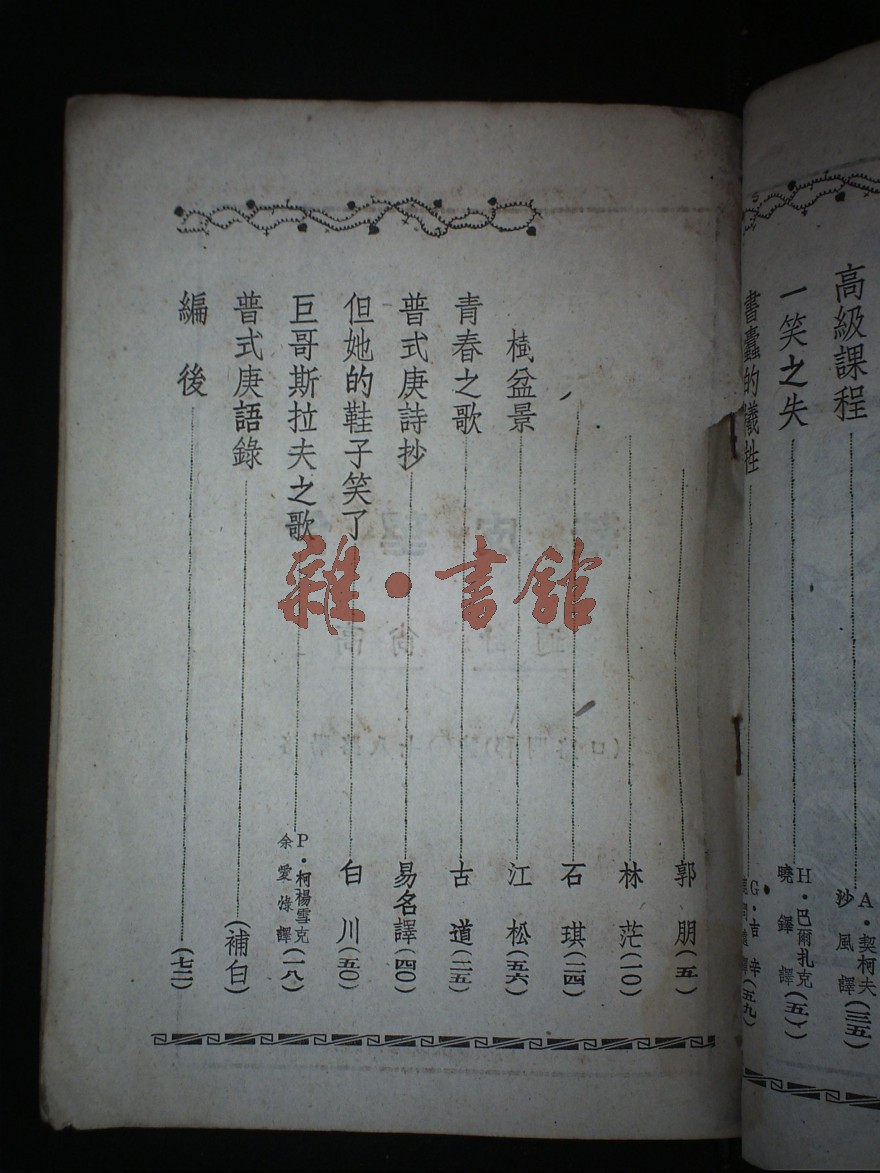 高級課程……A·契柯夫 沙風譯(三五)
一笑之失……H·巴爾扎克 曉鐸譯(五一)
書蠹的犧牲……G·吉辛 譯(五九)
……郭朋(五一)
……林茫(一〇)
……石琪(二四)
盆景……江松(五六)
青春之歌……古道(二五)
普式庚詩抄……易名譯(四〇)
但她的鞋子笑了……白川(五〇)
巨哥斯拉夫之歌……P·柯楊雪克 余愛淥譯(一八)
普式庚語錄……(補白)
編後……(七二)
雜·書館